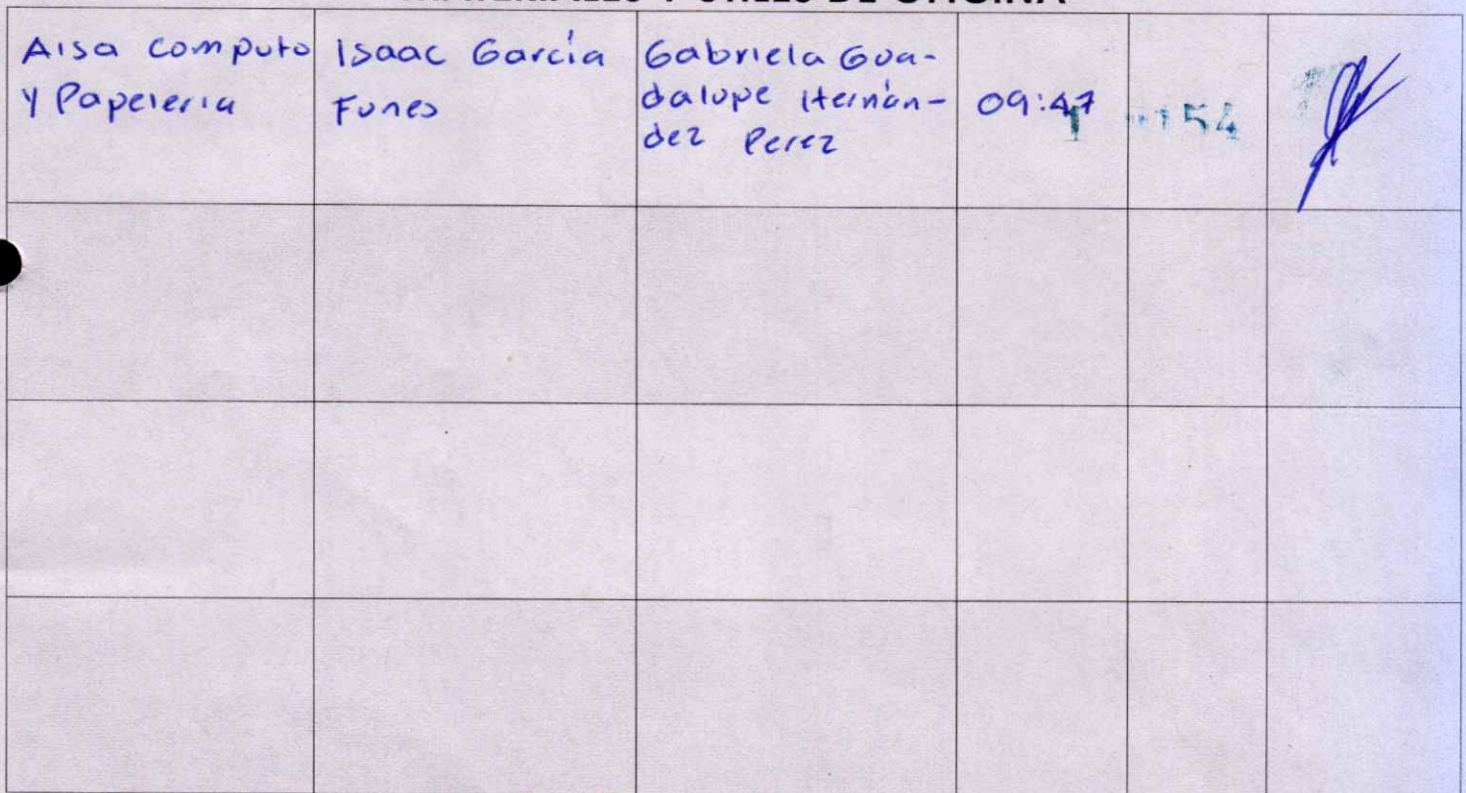 Y ÚTILES DE OFICINA
Aisa computo
y Papeleria
Isaac García
Funes
Gabriela Gua-
dalupe Hernán-
dez Perez
09:47
154